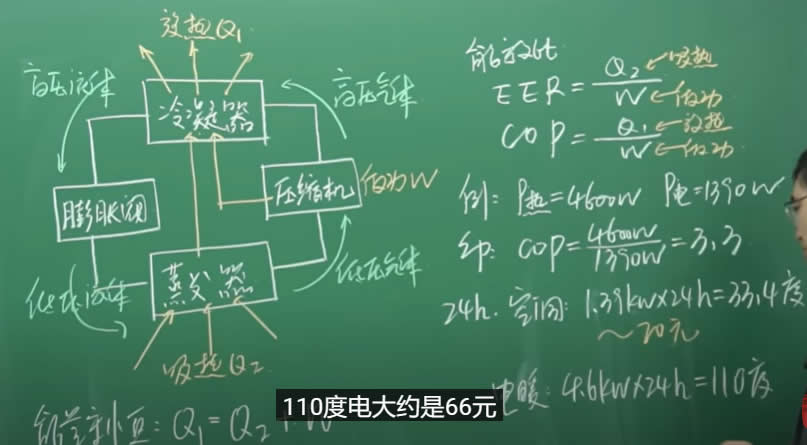 放热Q₁
高压液体
冷凝器
高压气体
膨胀阀
压缩机
做功W
低压液体
蒸发器
低压气体
吸热Q₂
能量守恒: Q₁=Q₂+W
能效比
EER=Q₂/W
吸热
做功
COP=Q₁/W
放热
做功
例: P热=4600W P电=1390W
即: COP=4600W/1390W=3.3
24h. 空调: 1.39kw×24h=33.4度
~20元
电暖: 4.6kw×24h=110度
110度电大约是66元